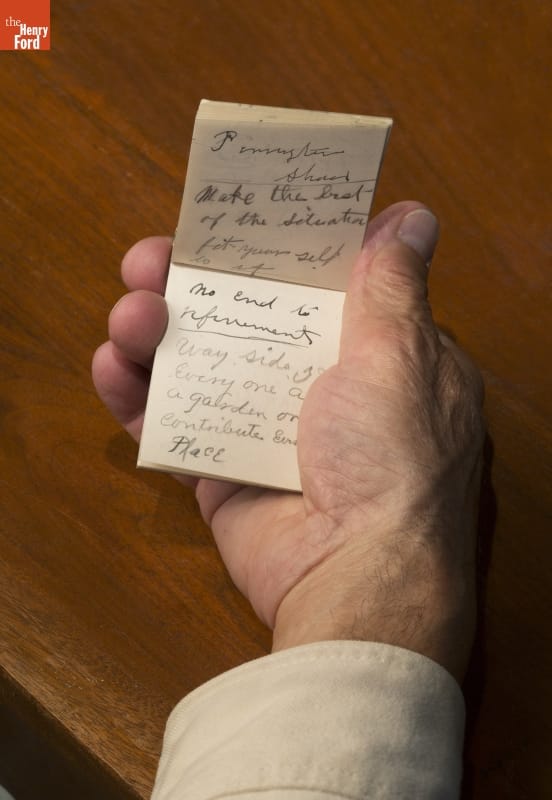 the
Henry
Ford
Make the best
of the situation
fit your self
to it
no end to
refinements
Way side
Every one a
a garden or
contribute
Place